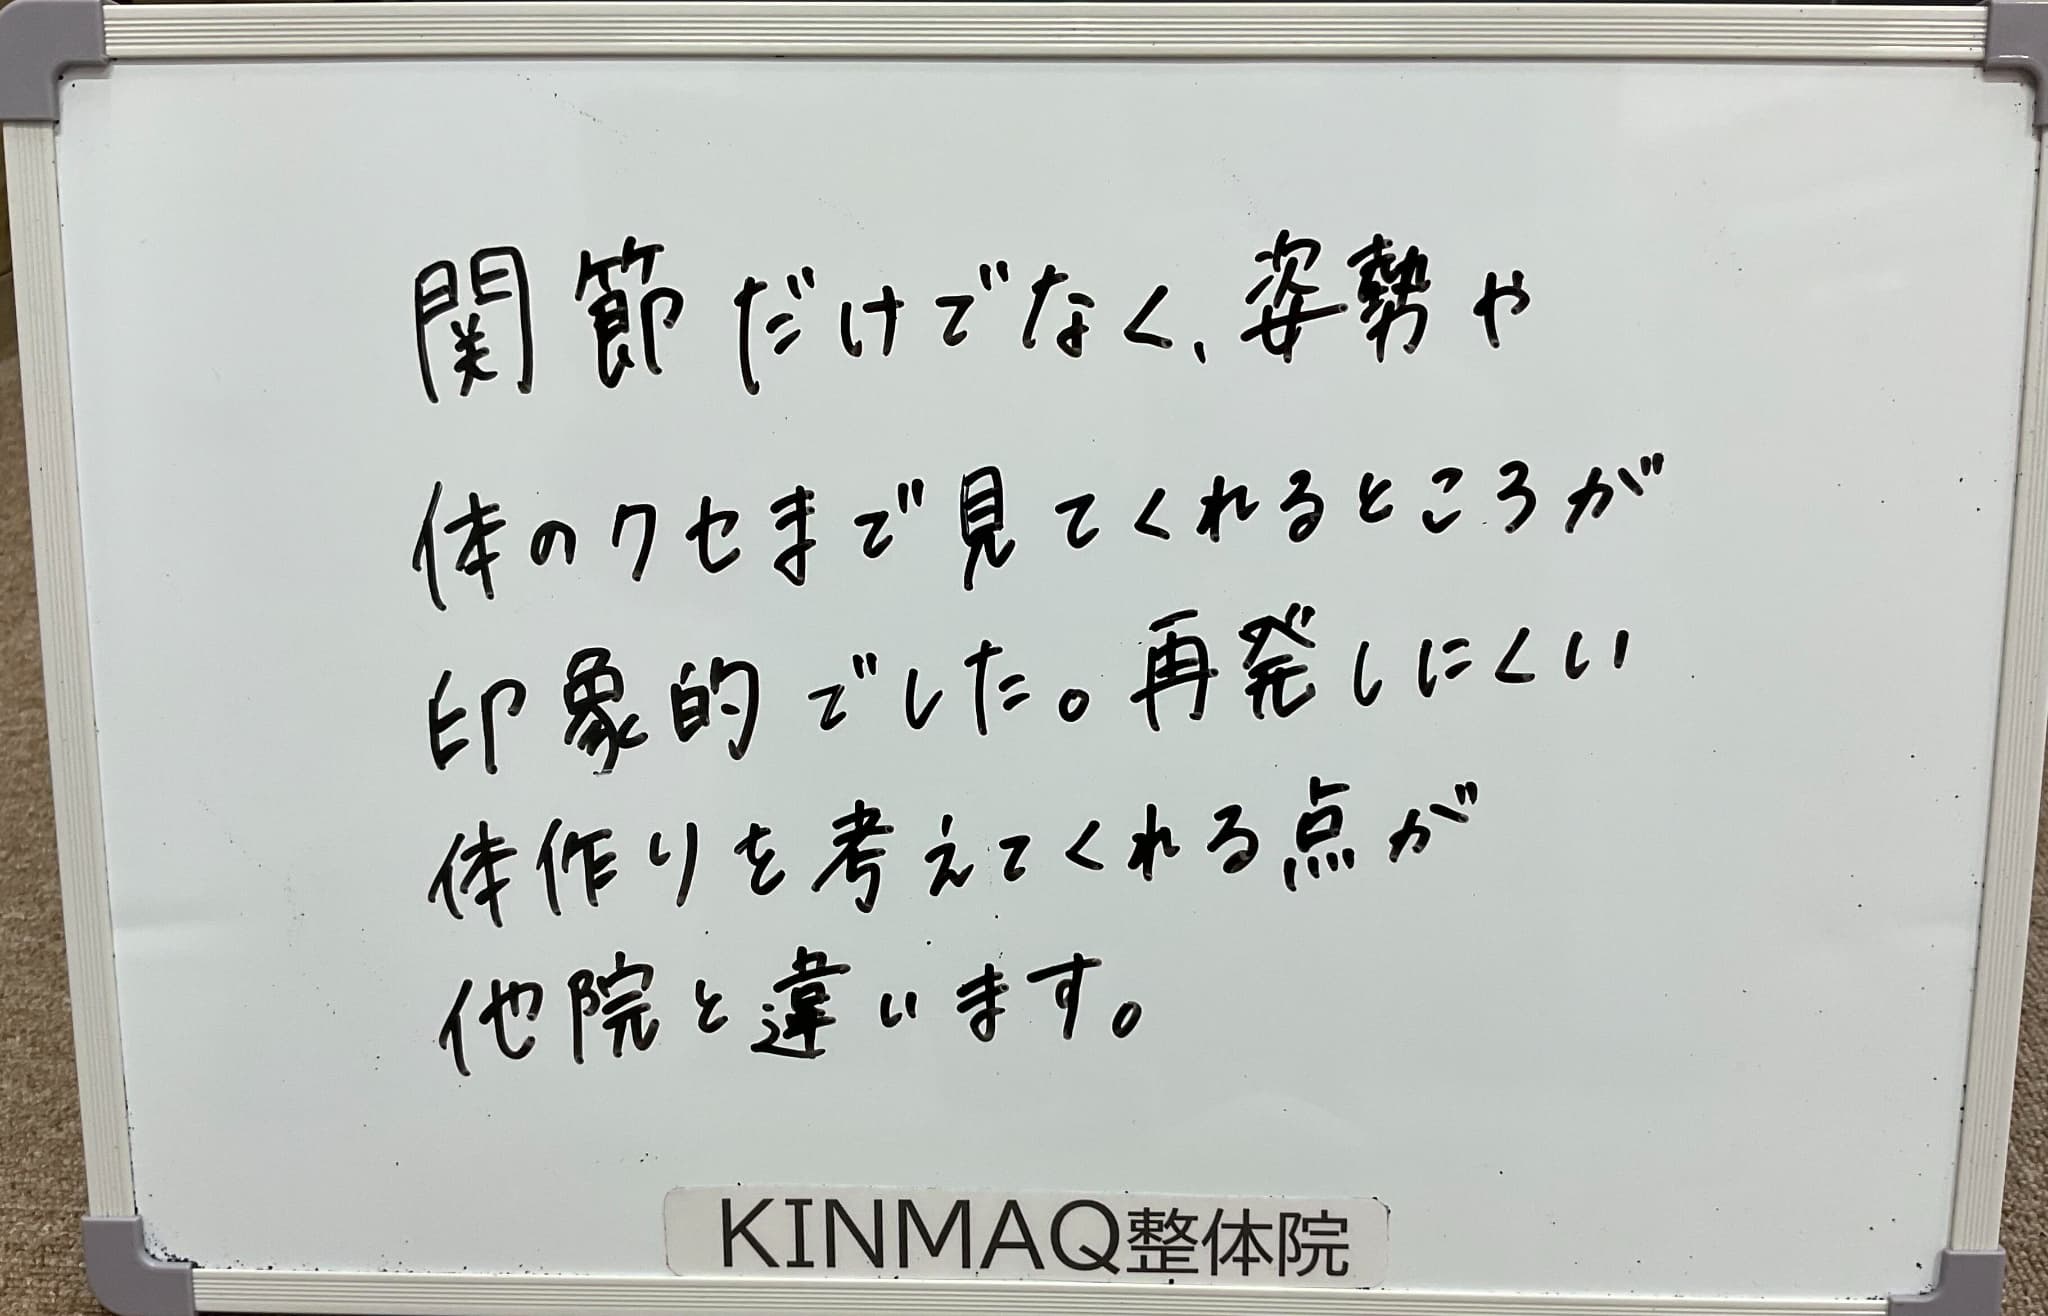 関節だけでなく、姿勢や
体のクセまで見てくれるところが
印象的でした。再発しにくい
体作りを考えてくれる点が
他院と違います。
KINMAQ整体院